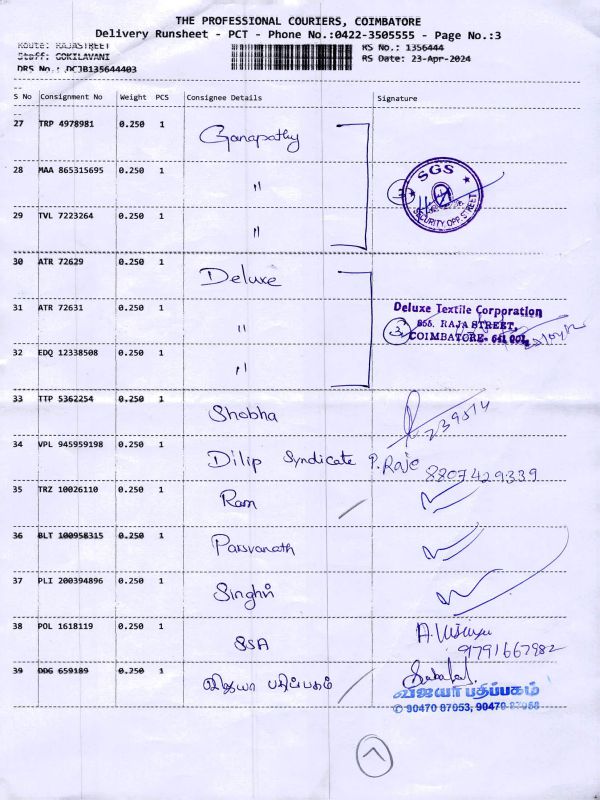 THE PROFESSIONAL COURIERS, COIMBATORE
Delivery Runsheet - PCT - Phone No.:0422-3505555 - Page No.:3
Route: RAJASTREET RS No.: 1356444
Staff: GOKILAVANI RS Date: 23-Apr-2024
DRS No.: DCJB135644403
S No Consignment No Weight PCS Consignee Details Signature
27 TRP 4978981 0.250 1 Ganapathy
28 MAA 865315695 0.250 1 "
SGS
SECURITY OPP. STREET
3
29 TVL 7223264 0.250 1 "
30 ATR 72629 0.250 1 Deluxe
31 ATR 72631 0.250 1 "
Deluxe Textile Corporation
RAJA STREET,
3
COIMBATORE- 641 001.
32 EDQ 12338508 0.250 1 "
33 TTP 5362254 0.250 1 Shobha
34 VPL 945959198 0.250 1 Dilip Syndicate P. Raje 8807429339
35 TRZ 10026110 0.250 1 Ram
36 BLT 100958315 0.250 1 Parsvanath
37 PLI 200394896 0.250 1 Singhvi
38 POL 1618119 0.250 1 SSA
9791667982
39 DDG 659189 0.250 1 விஜயா பதிப்பகம்
விஜயா பதிப்பகம்
✆ 90470 87053, 90470 87058